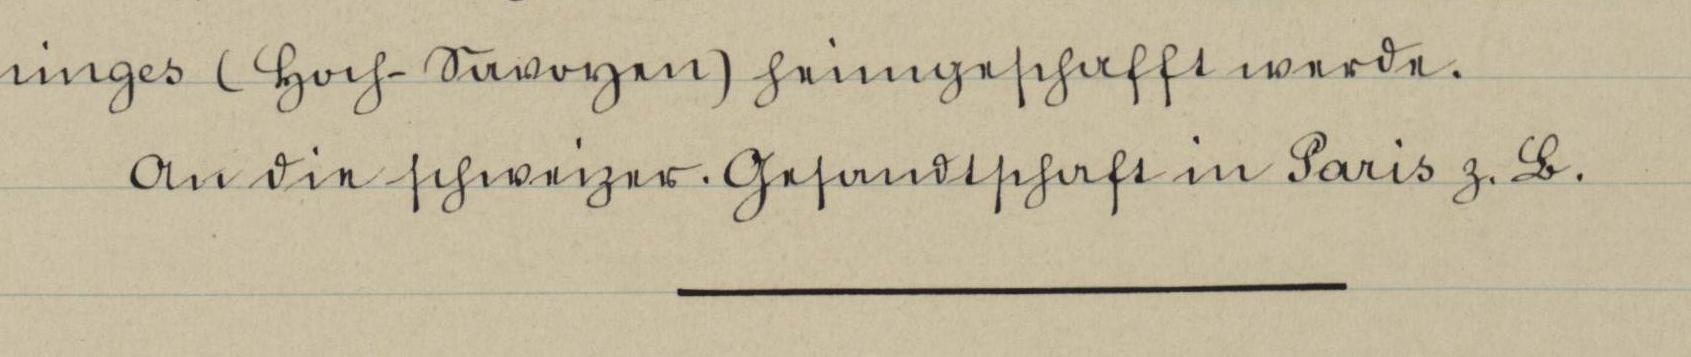 ninges (Hoch-Savoyen) heimgeschafft werde.
An die schweizer. Gesandtschaft in Paris z. B.